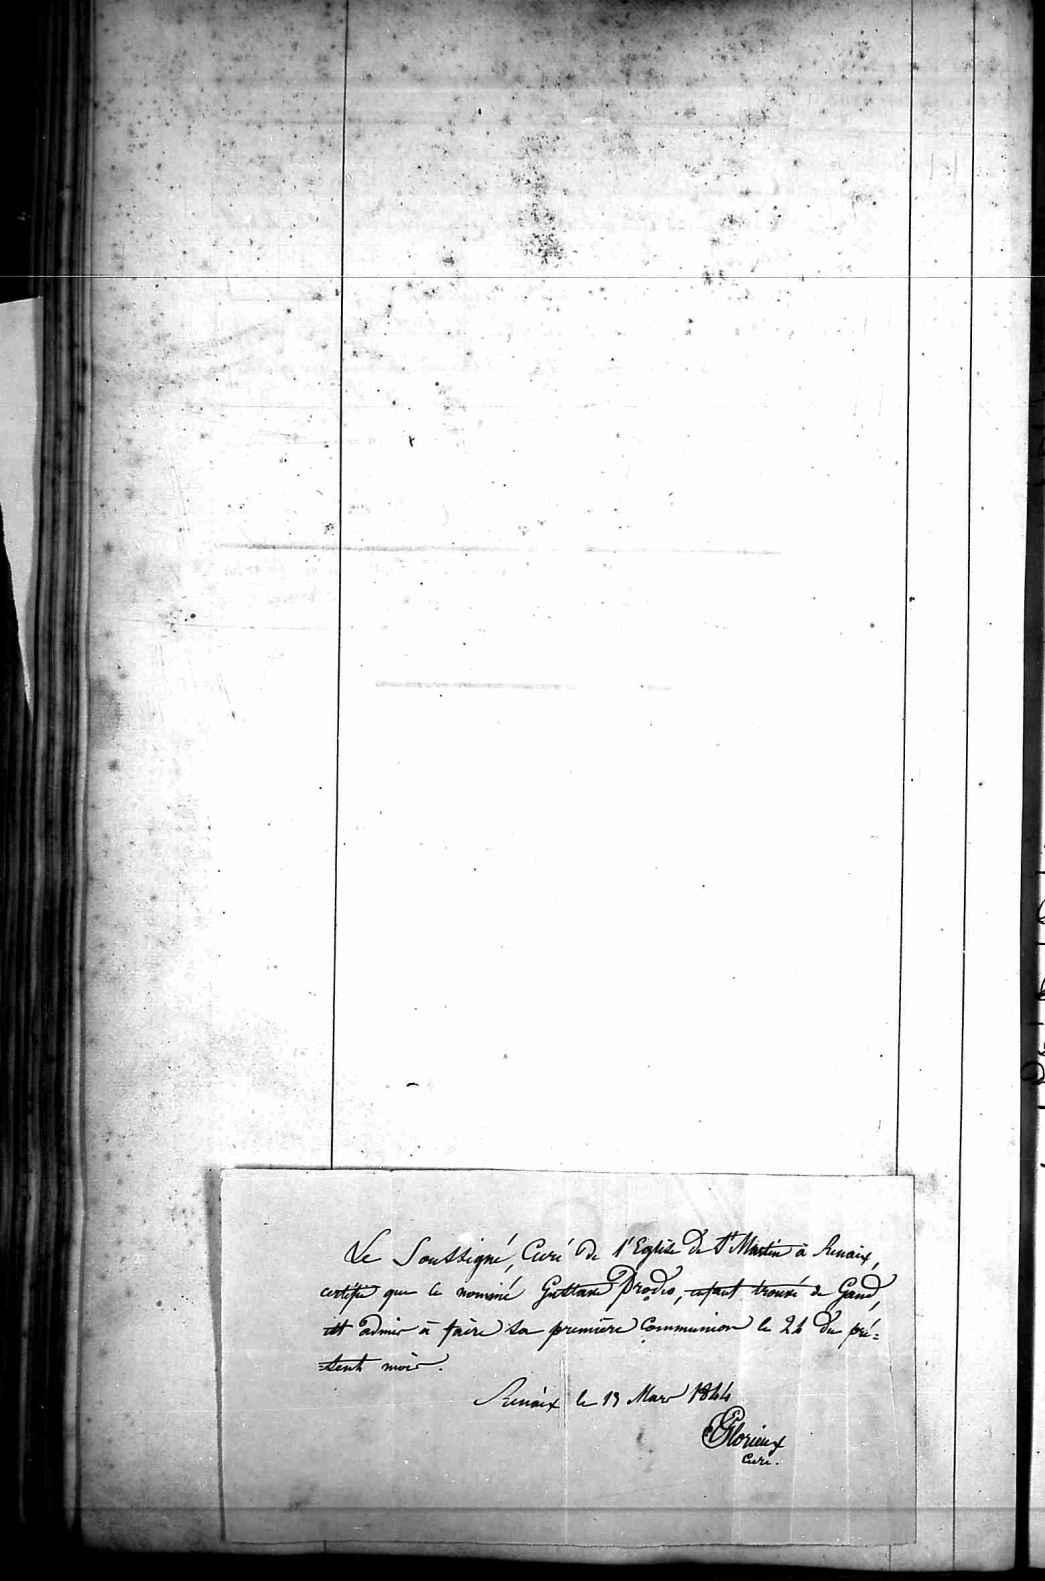 Le Soussigné, Curé de l'Eglise de St Martin à Renaix,
certifie que le nommé Gustave Prodis, enfant trouvé de Gand,
est admis à faire sa première Communion le 24 du pré=
=sent mois.
Renaix le 13 Mars 1844
Glorieux
Curé.